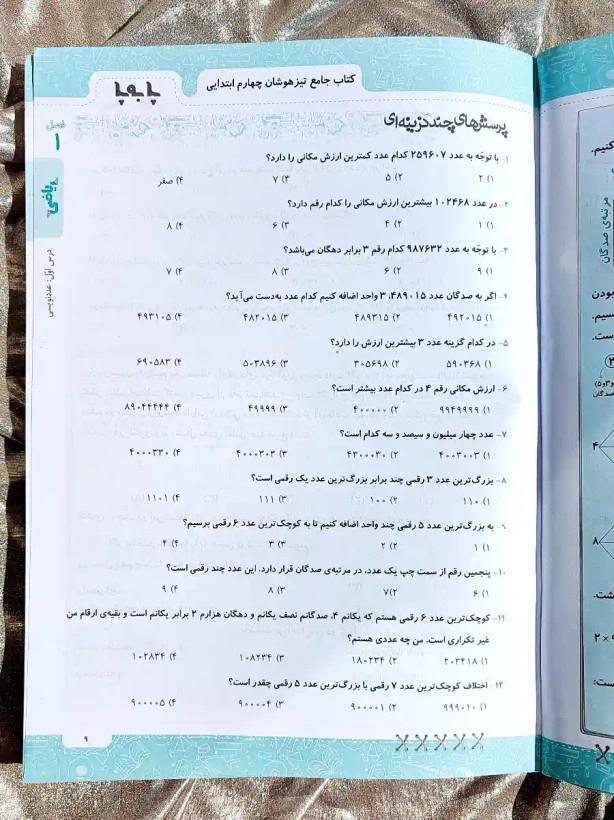 کتاب جامع تیزهوشان چهارم ابتدایی
پا به پا
فصل
۱
ریاضی
درس اول: عددنویسی
پرسش‌های چندگزینه‌ای
۱- با توجّه به عدد ۲۵۹۶۰۷ کدام عدد کمترین ارزش مکانی را دارد؟
۱) ۲ ۲) ۵ ۳) ۷ ۴) صفر
۲- در عدد ۱۰۲۴۶۸ بیشترین ارزش مکانی را کدام رقم دارد؟
۱) ۱ ۲) ۴ ۳) ۶ ۴) ۸
۳- با توجّه به عدد ۹۸۷۶۳۲ کدام رقم ۳ برابر دهگان می‌باشد؟
۱) ۹ ۲) ۶ ۳) ۸ ۴) ۷
۴- اگر به صدگان عدد ۴۸۹۰۱۵، ۳ واحد اضافه کنیم کدام عدد به‌دست می‌آید؟
۱) ۴۹۲۰۱۵ ۲) ۴۸۹۳۱۵ ۳) ۴۸۲۰۱۵ ۴) ۴۹۳۱۰۵
۵- در کدام گزینه عدد ۳ بیشترین ارزش را دارد؟
۱) ۵۹۰۳۶۸ ۲) ۳۰۵۶۹۸ ۳) ۵۰۳۸۹۶ ۴) ۶۹۰۵۸۳
۶- ارزش مکانی رقم ۴ در کدام عدد بیشتر است؟
۱) ۹۹۴۹۹۹۹ ۲) ۴۰۰۰۰۰ ۳) ۴۹۹۹۹ ۴) ۸۹۰۴۴۴۴۴
۷- عدد چهار میلیون و سیصد و سه کدام است؟
۱) ۴۰۰۳۰۰۳ ۲) ۴۳۰۰۰۳۰ ۳) ۴۰۰۰۳۰۳ ۴) ۴۰۰۰۳۳۰
۸- بزرگ‌ترین عدد ۳ رقمی چند برابر بزرگ‌ترین عدد یک رقمی است؟
۱) ۱۱۰ ۲) ۱۰۰ ۳) ۱۱۱ ۴) ۱۱۰۱
۹- به بزرگ‌ترین عدد ۵ رقمی چند واحد اضافه کنیم تا به کوچک‌ترین عدد ۶ رقمی برسیم؟
۱) ۱ ۲) ۲ ۳) ۳ ۴) ۴
۱۰- پنجمین رقم از سمت چپ یک عدد، در مرتبه‌ی صدگان قرار دارد. این عدد چند رقمی است؟
۱) ۶ ۲) ۷ ۳) ۸ ۴) ۹
۱۱- کوچک‌ترین عدد ۶ رقمی هستم که یکانم ۴، صدگانم نصف یکانم و دهگان هزارم ۲ برابر یکانم است و بقیه‌ی ارقام من
غیر تکراری است. من چه عددی هستم؟
۱) ۲۰۳۴۱۸ ۲) ۱۸۰۲۳۴ ۳) ۱۰۸۲۳۴ ۴) ۱۰۲۸۳۴
۱۲- اختلاف کوچک‌ترین عدد ۷ رقمی با بزرگ‌ترین عدد ۵ رقمی چقدر است؟
۱) ۹۹۹۰۱۰ ۲) ۹۰۰۰۰۱ ۳) ۹۰۰۰۰۴ ۴) ۹۰۰۰۰۵
۹